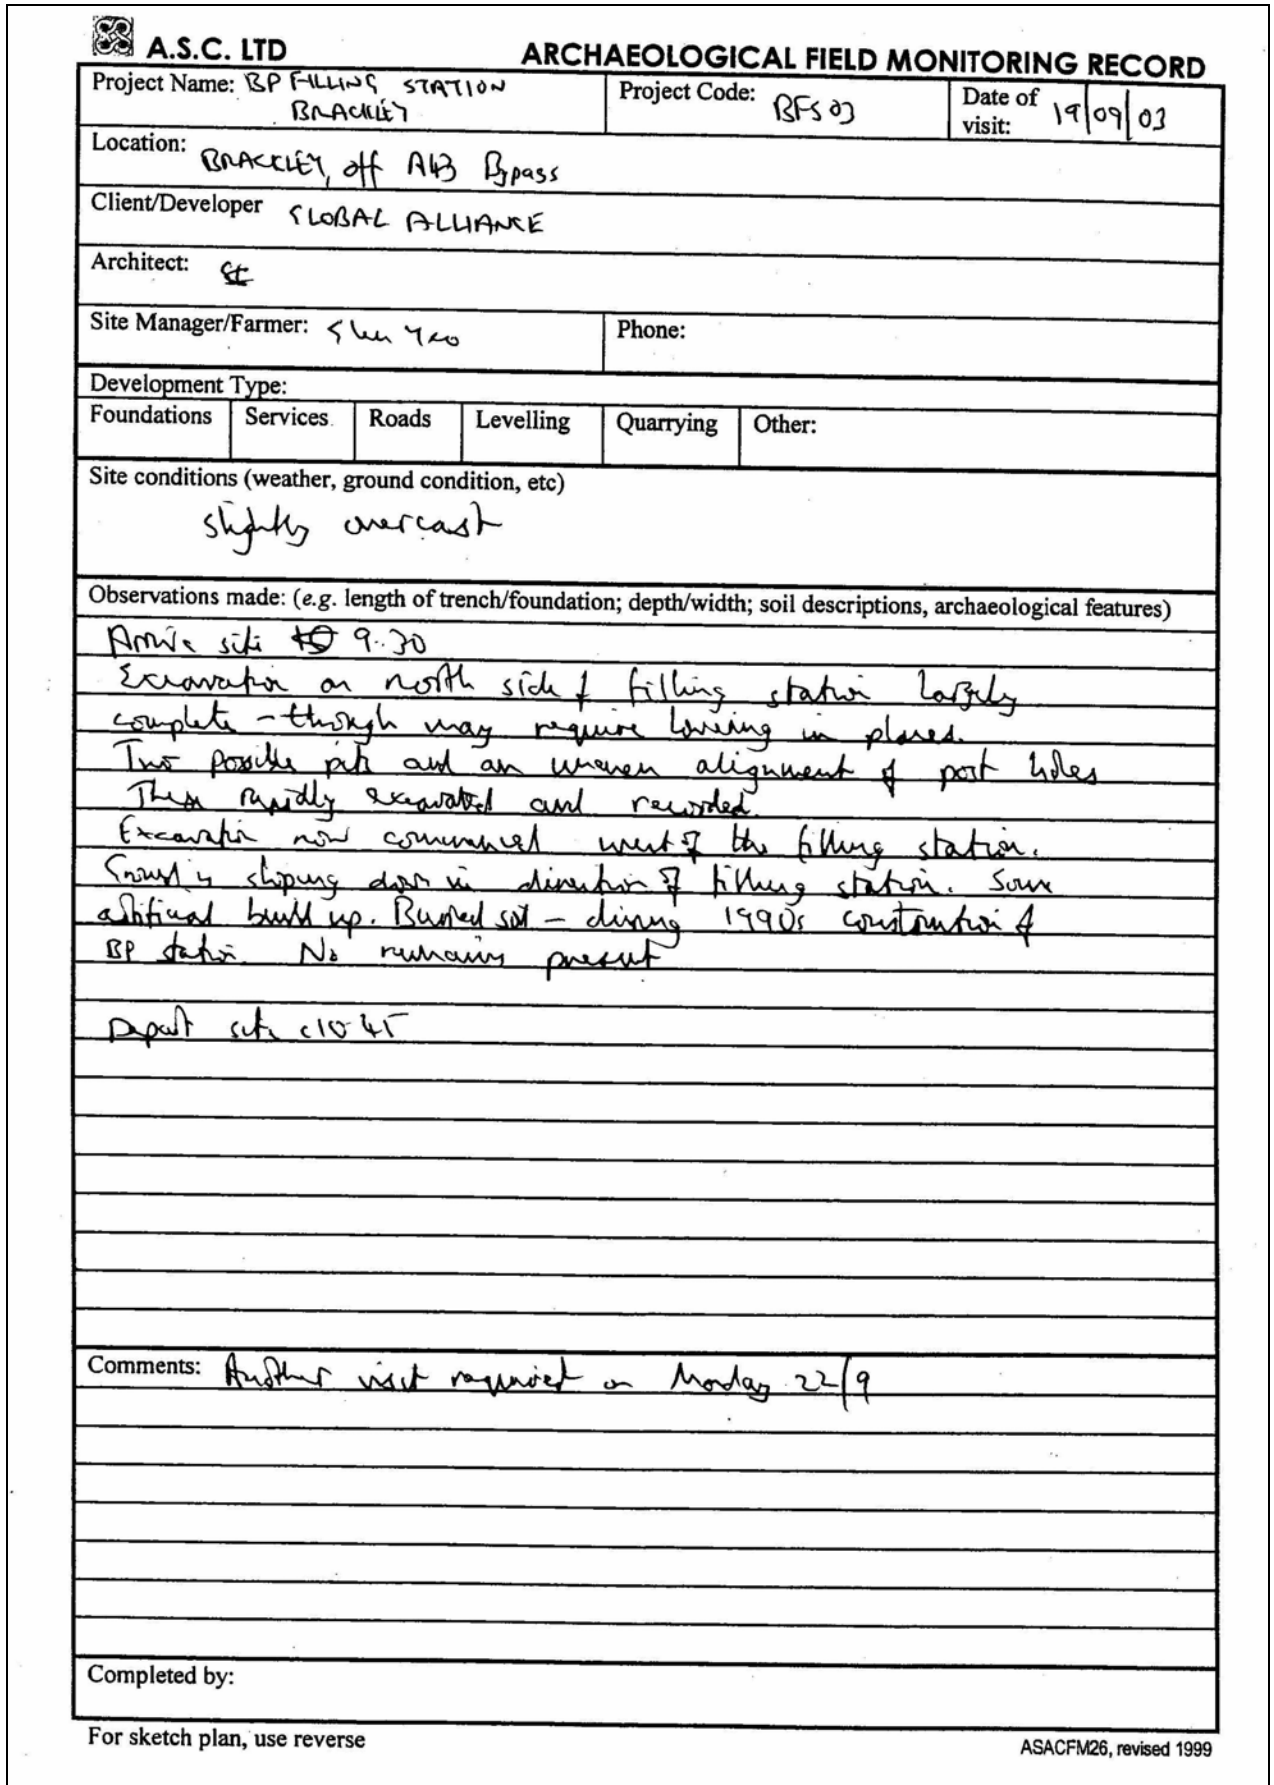 A.S.C. LTD
ARCHAEOLOGICAL FIELD MONITORING RECORD
Project Name: BP FILLING STATION
BRACKLEY
Project Code: BFS03
Date of visit: 19/09/03
Location: BRACKLEY, off A43 Bypass
Client/Developer GLOBAL ALLIANCE
Architect:
Site Manager/Farmer:
Phone:
Development Type:
Foundations Services Roads Levelling Quarrying Other:
Site conditions (weather, ground condition, etc)
slightly overcast
Observations made: (e.g. length of trench/foundation; depth/width; soil descriptions, archaeological features)
Arrive site 9.30
Excavation on north side of filling station largely
complete - though may require lowering in places.
Two possible pits and an uneven alignment of post holes
These rapidly excavated and recorded.
Excavation now commenced west of the filling station.
Ground is sloping down in direction of filling station. Some
artificial build up. Buried soil - during 1990s construction of
BP station. No remains present
Depart site c10.45
Comments: Another visit required on Monday 22/9
Completed by:
For sketch plan, use reverse
ASACFM26, revised 1999